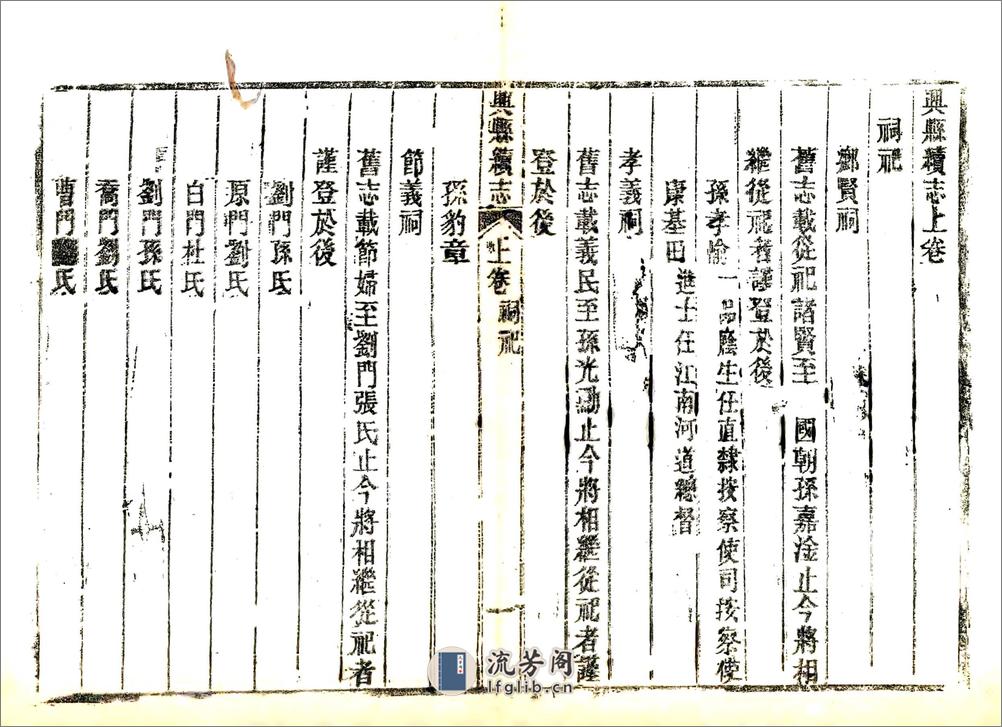 興縣續志上卷
祠祀
鄉賢祠
舊志載從祀諸賢至 國朝孫嘉淦止今將相
繼從祀者謹登於後
孫孝愉一品廕生任直隸按察使司按察使
康基田進士任江南河道總督
孝義祠
舊志載義民至孫光勛止今將相繼從祀者謹
登於後
興縣續志 上卷 祠祀 一
孫豹章
節義祠
舊志載節婦至劉門張氏止今將相繼從祀者
謹登於後
劉門孫氏
原門劉氏
白門杜氏
劉門孫氏
喬門劉氏
曹門 氏
流芳阁
lfglib.cn